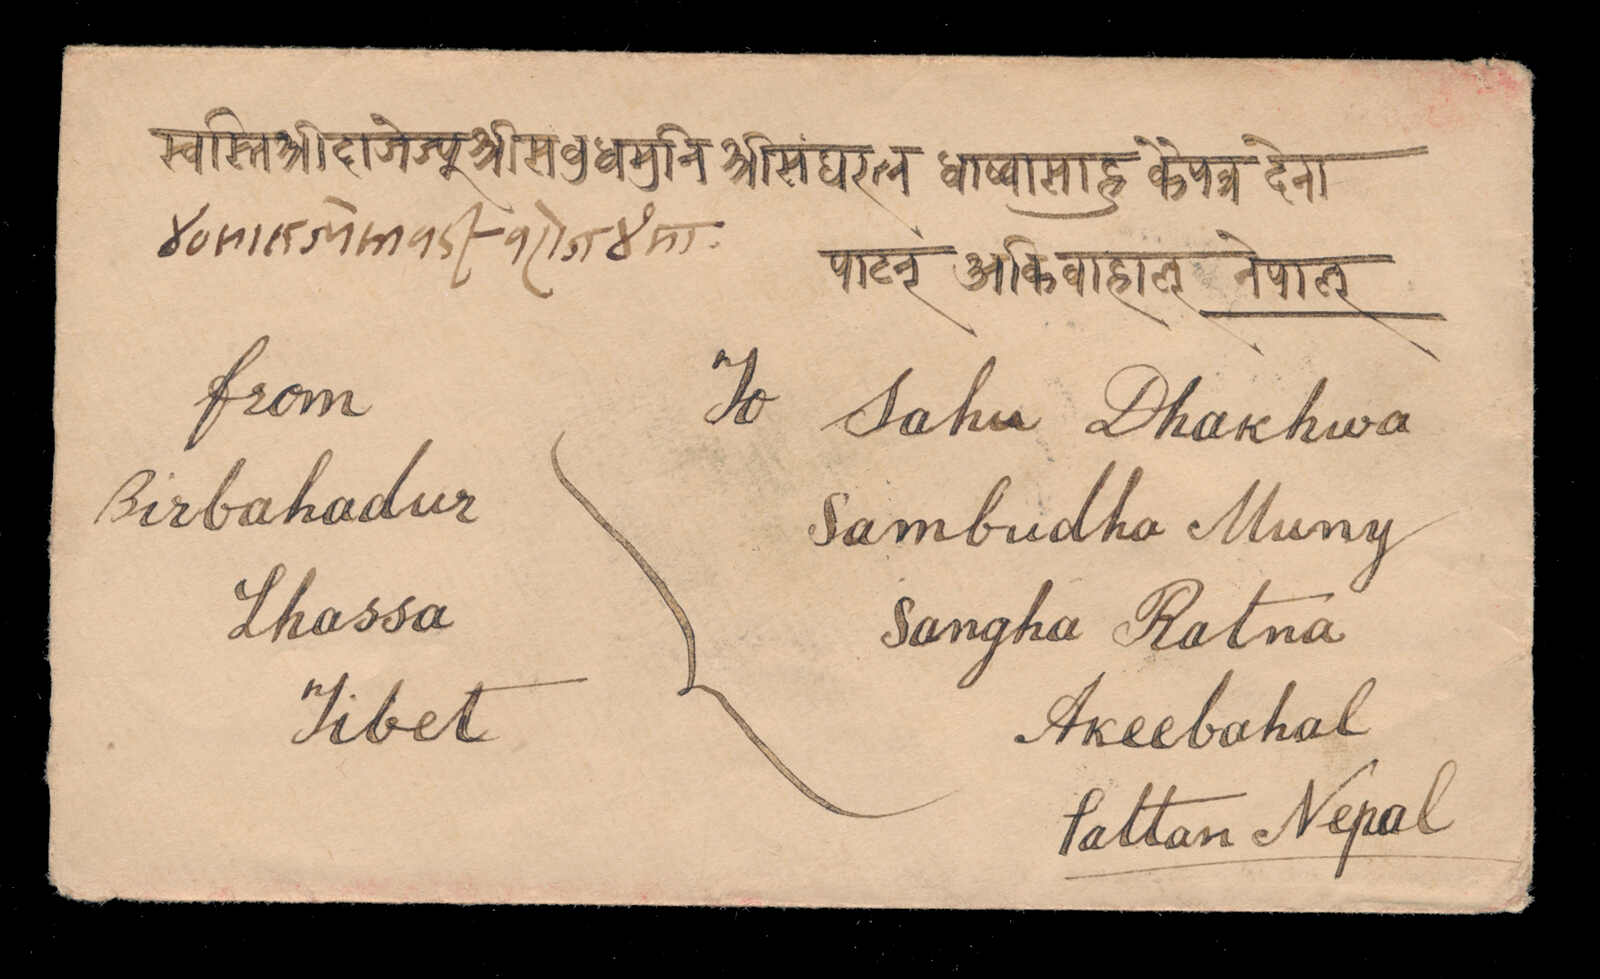 स्वस्ति श्री दाजेज्यू श्री सम्बुधमुनि श्री संघरत्न धाष्वा साहु के पत्र देना
पाटन अकिवाहाल नेपाल
from
Birbahadur
Lhassa
Tibet
To Sahu Dhakhwa
Sambudha Muny
Sangha Ratna
Akeebahal
Pattan Nepal